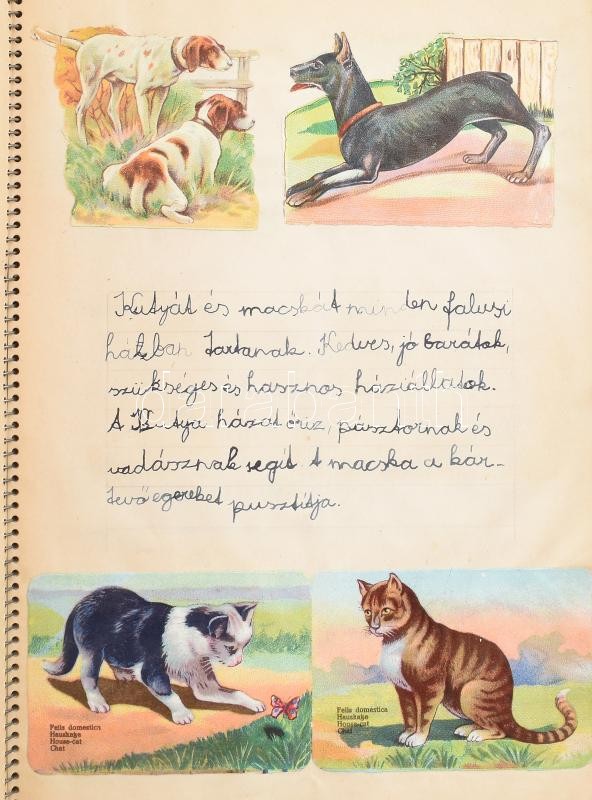 Kutyát és macskát minden falusi
házban tartanak. Kedves, jó barátok,
szükséges és hasznos háziállatok.
A Kutya házat őriz, pásztornak és
vadásznak segít. A macska a kár-
tevő egereket pusztítja.
Felis domestica
Hauskatze
House-cat
Chat
Felis domestica
Hauskatze
House-cat
Chat
darabanth